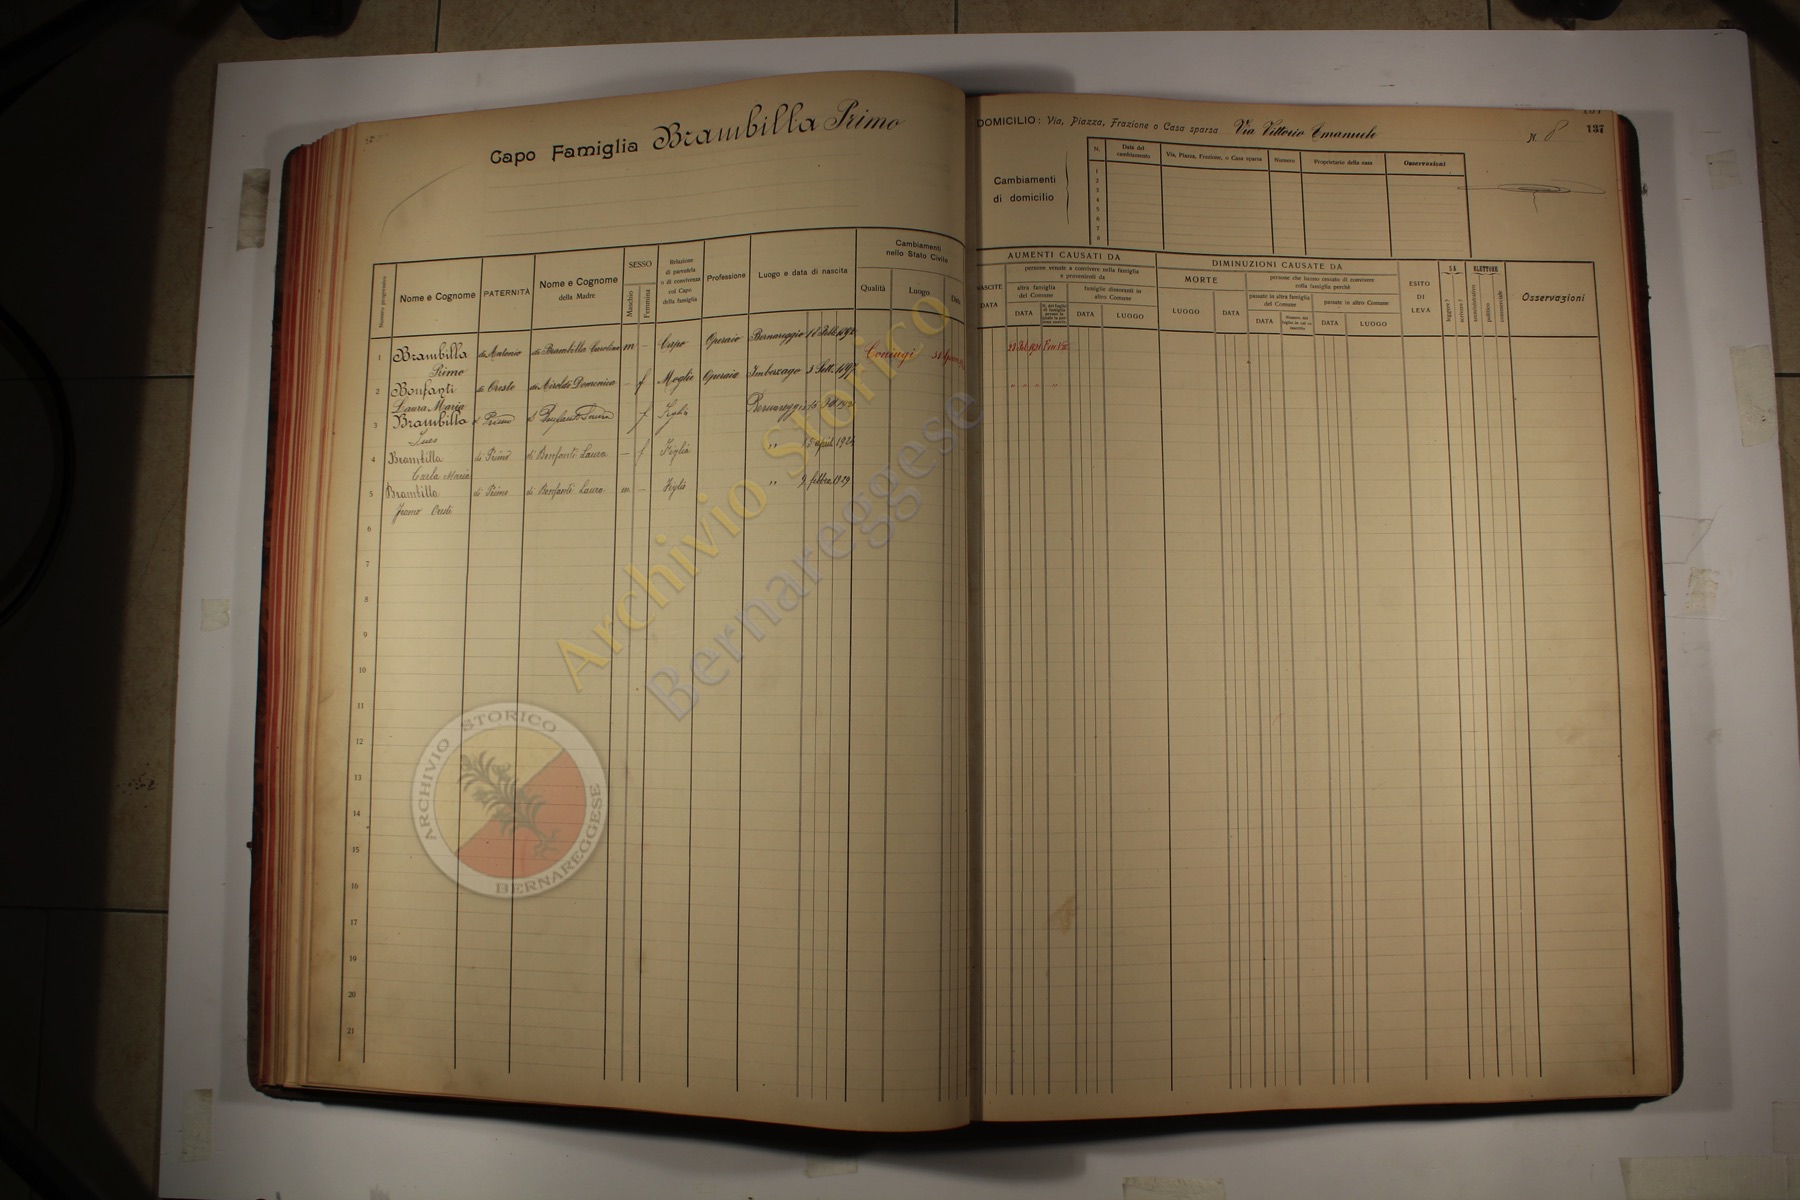 Capo Famiglia Brambilla Primo
DOMICILIO: Via, Piazza, Frazione o Casa sparsa Via Vittorio Emanuele N. 8
137
Cambiamenti
di domicilio
N. Data del cambiamento Via, Piazza, Frazione, o Casa sparsa Numero Proprietario della casa Osservazioni
1
2
3
4
5
6
7
8
Numero progressivo
Nome e Cognome
PATERNITÀ
Nome e Cognome
della Madre
SESSO
Maschio
Femmina
Relazione
di parentela
o di convivenza
col Capo
della famiglia
Professione
Luogo e data di nascita
Cambiamenti
nello Stato Civile
Qualità
Luogo
Data
AUMENTI CAUSATI DA
NASCITE
DATA
persone venute a convivere nella famiglia
e provenienti da
altra famiglia
del Comune
DATA
famiglie dimoranti in
altro Comune
DATA
LUOGO
DIMINUZIONI CAUSATE DA
MORTE
LUOGO
DATA
persone che hanno cessato di convivere
colla famiglia perchè
passate in altra famiglia
del Comune
DATA
passate in altro Comune
DATA
LUOGO
ESITO
DI
LEVA
SA
leggere?
scrivere?
ELETTORE
amministrativo
politico
commerciale
Osservazioni
1 Brambilla di Antonio di Brambilla Carolina m – Capo Operaio Bernareggio Coniugi
Primo
2 Bonfanti di Oreste di Airoldi Domenica – f Moglie Operaia Imbersago 3 Sett. 1897
Laura Maria
3 Brambilla di Primo di Bonfanti Laura f Figlia Bernareggio
Ines
4 Brambilla di Primo di Bonfanti Laura – f Figlia " 15 april.
Carla Maria
5 Brambilla di Primo di Bonfanti Laura m – Figlio " 9 febbra. 1929
6
7
8
9
10
11
12
13
14
15
16
17
18
19
20
21
Archivio Storico
Bernareggese
ARCHIVIO STORICO
BERNAREGGESE